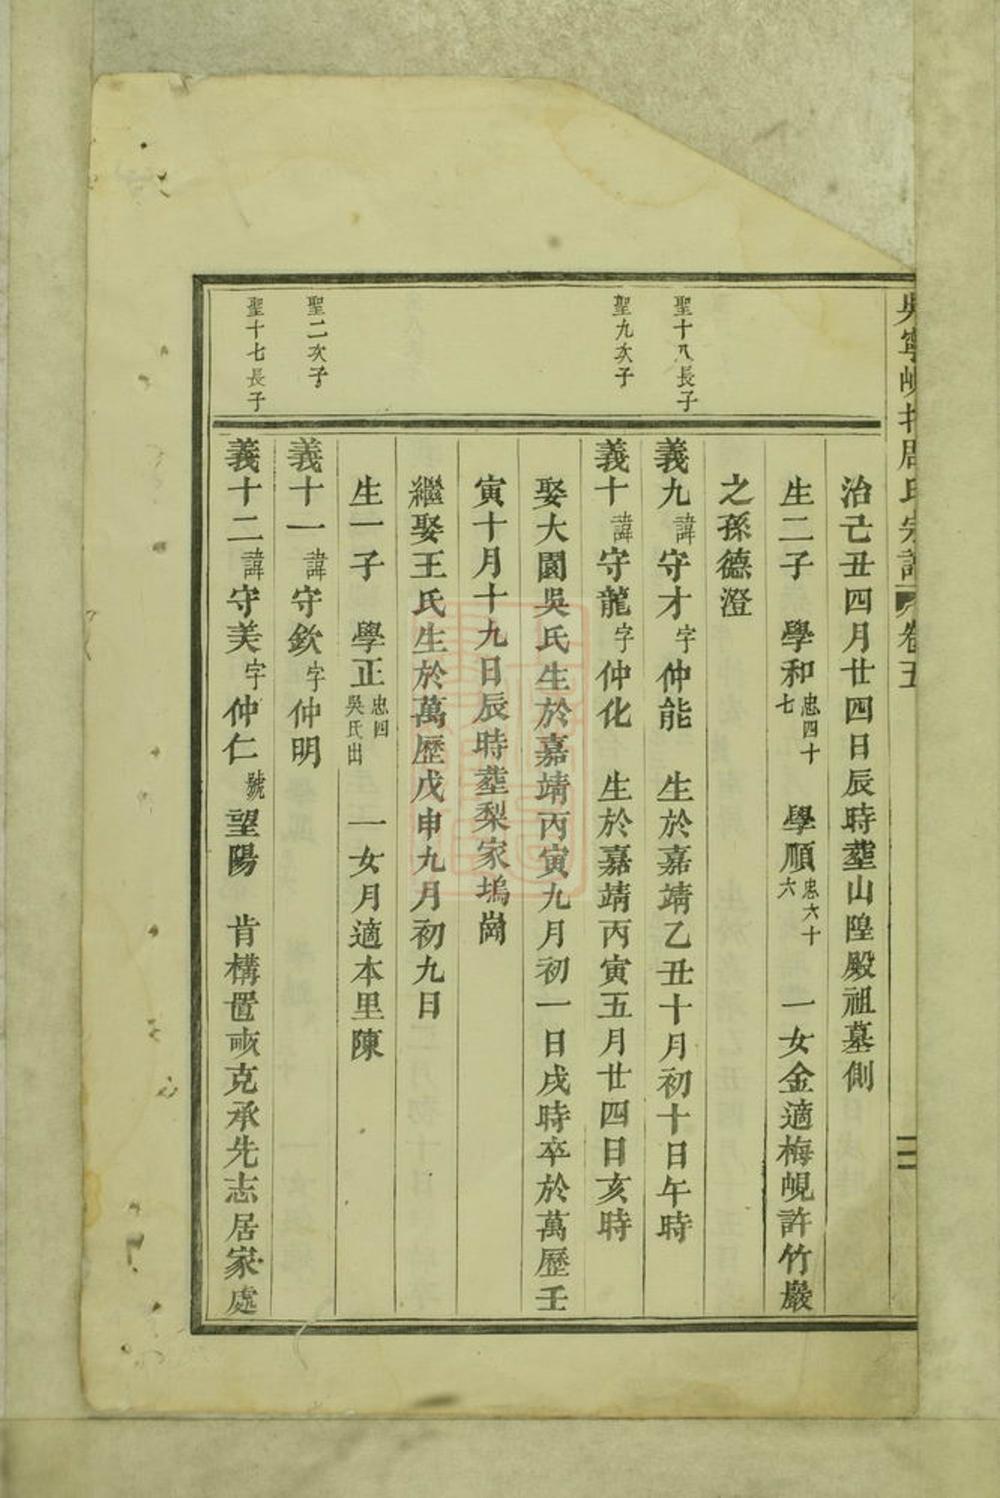 吳寧峴北周氏宗譜 卷五 二
治己丑四月廿四日辰時塟山隍殿祖墓側
生二子 學和忠四十七 學順忠六十六 一女金適梅峴許竹巖
之孫德澄
聖十八長子
義九諱守才字仲能 生於嘉靖乙丑十月初十日午時
聖九次子
義十諱守龍字仲化 生於嘉靖丙寅五月廿四日亥時
娶大園吳氏生於嘉靖丙寅九月初一日戌時卒於萬歷壬
寅十月十九日辰時塟梨家塢崗
繼娶王氏生於萬歷戊申九月初九日
生一子 學正忠四吳氏出 一女月適本里陳
聖二次子
義十一諱守欽字仲明
聖十七長子
義十二諱守美字仲仁號望陽 肯構置畝克承先志居家處